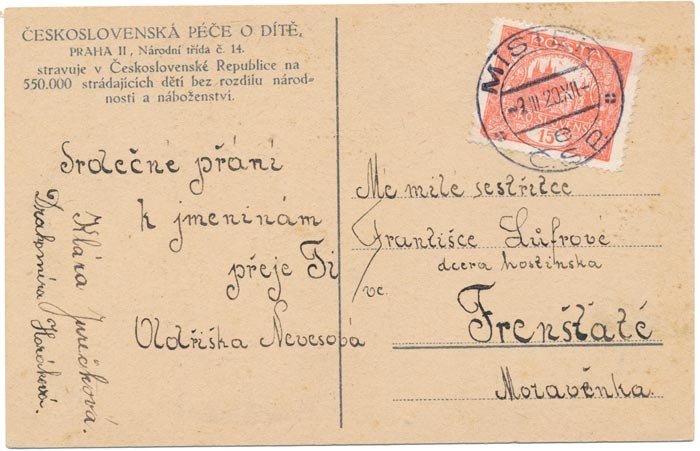 ČESKOSLOVENSKÁ PÉČE O DÍTĚ,
PRAHA II, Národní třída č. 14.
stravuje v Československé Republice na
550.000 strádajících dětí bez rozdílu národ-
nosti a náboženství.
Srdečné přání
k jmeninám
přeje Ti
Oldřiška Nevesobá
Klára Juříčková.
Drahomíra Horáková.
MÍSTEK
-9 III 20.XII-
ČSP
POŠTA
15
Mé milé sestřitce
Františce Lüfrové
dcera hostinska
ve.
Frenštatě
Moravěnka.